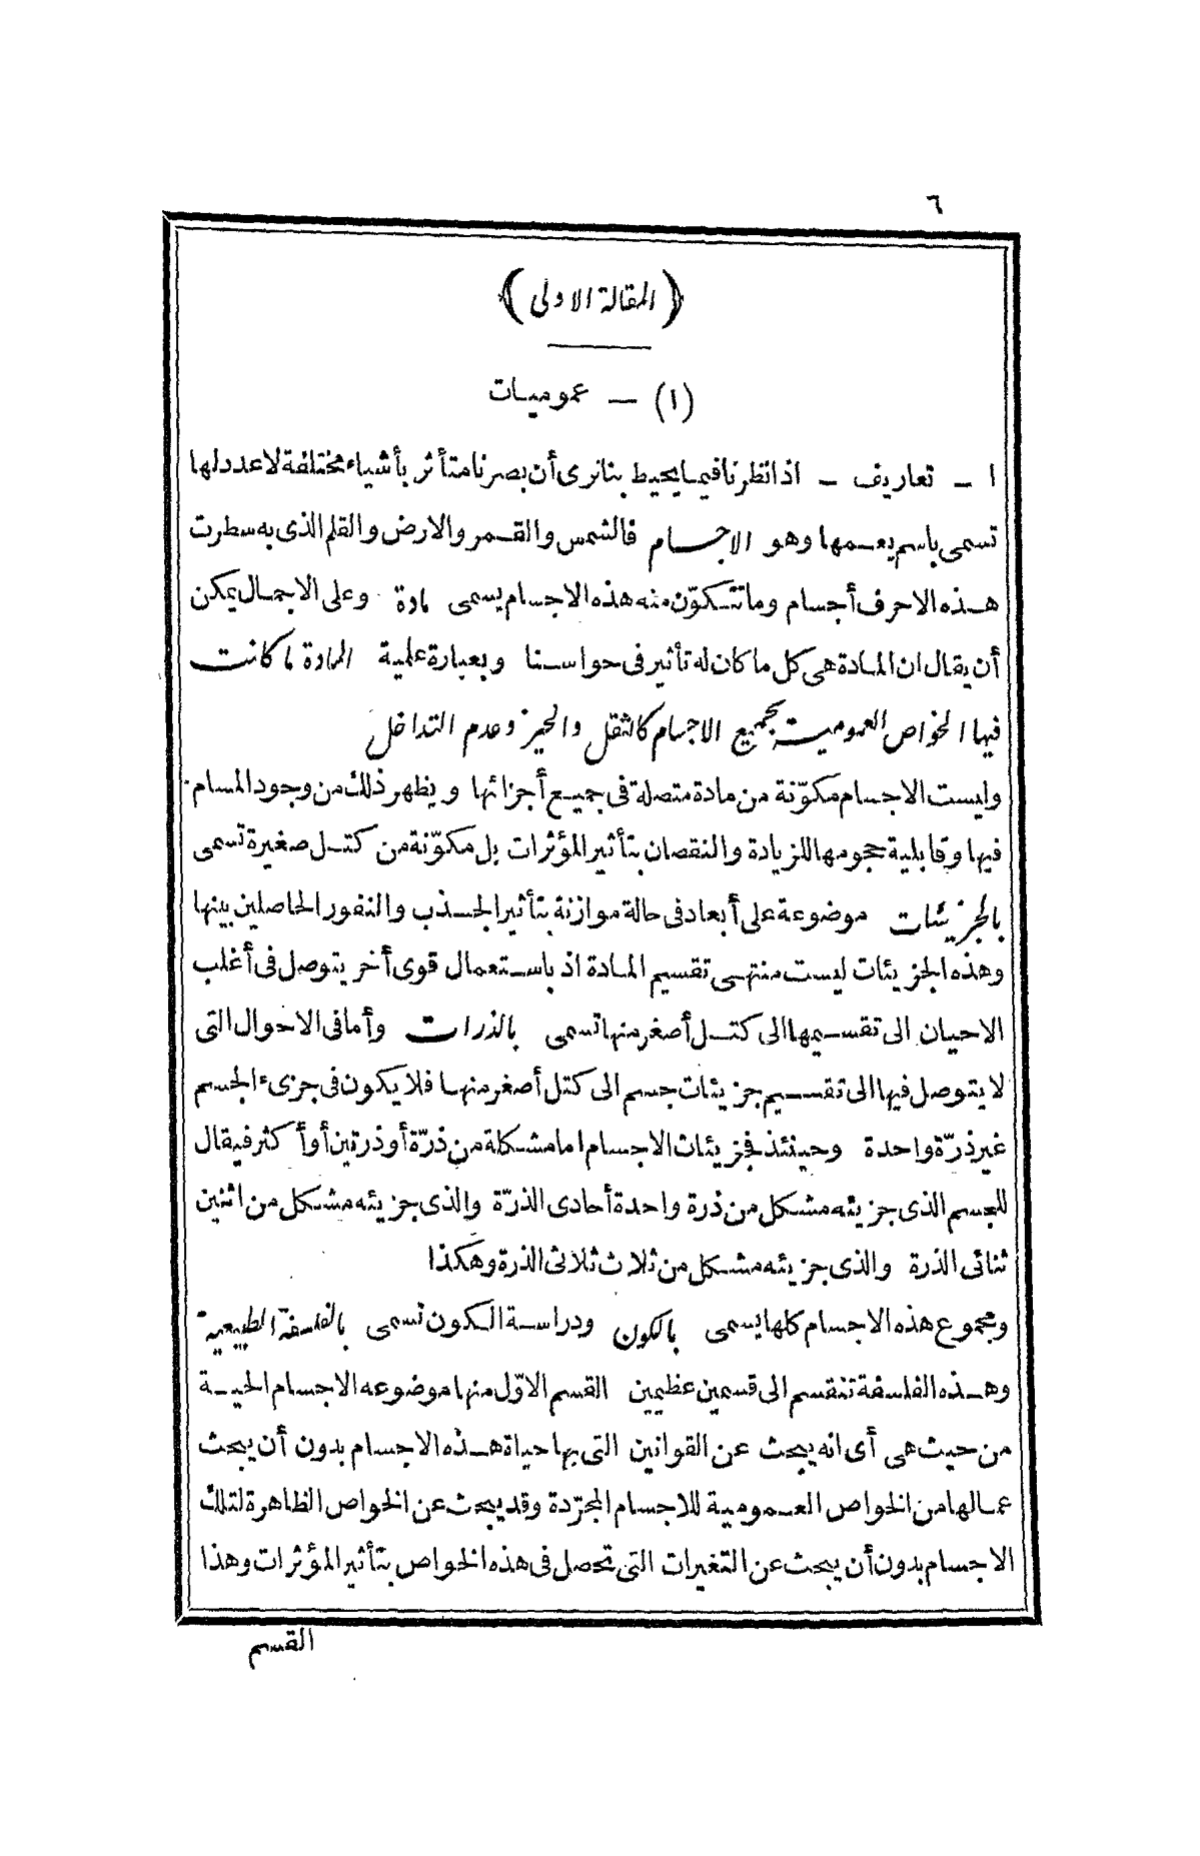 ٦
﴿المقالة الاولى﴾
(١) — عموميات
١ - تعاريف - اذا نظرنا فيما يحيط بنا نرى أن بصرنا متأثر بأشياء مختلفة لا عدد لها
تسمى باسم يعمها وهو الاجسام فالشمس والقمر والارض والقلم الذى به سطرت
هذه الاحرف أجسام وما تتكوّن منه هذه الاجسام يسمى مادة وعلى الاجمال يمكن
أن يقال ان المادة هى كل ما كان له تأثير فى حواسنا وبعبارة علمية المادة ما كانت
فيها الخواص العمومية بجميع الاجسام كالثقل والحيز وعدم التداخل
وليست الاجسام مكوّنة من مادة متصلة فى جميع أجزائها ويظهر ذلك من وجود المسام
فيها وقابلية حجومها للزيادة والنقصان بتأثير المؤثرات بل مكوّنة من كتل صغيرة تسمى
بالجزيئات موضوعة على أبعاد فى حالة موازنة بتأثير الجذب والنفور الحاصلين بينها
وهذه الجزيئات ليست منتهى تقسيم المادة اذ باستعمال قوى أخر يتوصل فى أغلب
الاحيان الى تقسيمها الى كتل أصغر منها تسمى بالذرات وأما فى الاحوال التى
لا يتوصل فيها الى تقسيم جزيئات جسم الى كتل أصغر منها فلا يكون فى جزىء الجسم
غير ذرّة واحدة وحينئذ فجزيئات الاجسام اما مشكلة من ذرّة أو ذرتين أو أكثر فيقال
للجسم الذى جزيئه مشكل من ذرة واحدة أحادى الذرّة والذى جزيئه مشكل من اثنين
ثنائى الذرة والذى جزيئه مشكل من ثلاث ثلاثى الذرة وهكذا
ومجموع هذه الاجسام كلها يسمى بالكون ودراسة الكون تسمى بالفلسفة الطبيعية
وهذه الفلسفة تنقسم الى قسمين عظيمين القسم الاوّل منها موضوعه الاجسام الحية
من حيث هى أى انه يبحث عن القوانين التى بها حياة هذه الاجسام بدون أن يبحث
عما لها من الخواص العمومية للاجسام المجرّدة وقد يبحث عن الخواص الظاهرة لتلك
الاجسام بدون أن يبحث عن التغيرات التى تحصل فى هذه الخواص بتأثير المؤثرات وهذا
القسم